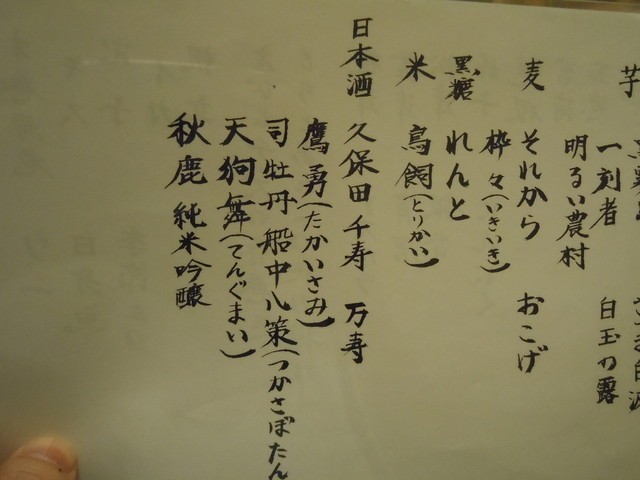 芋
一刻者 白玉の露
明るい農村
麦 それから おこげ
粋々(いきいき)
黒糖 れんと
米 鳥飼(とりかい)
日本酒 久保田 千寿 万寿
鷹勇(たかいさみ)
司牡丹 船中八策(つかさぼたん
天狗舞(てんぐまい)
秋鹿 純米吟醸